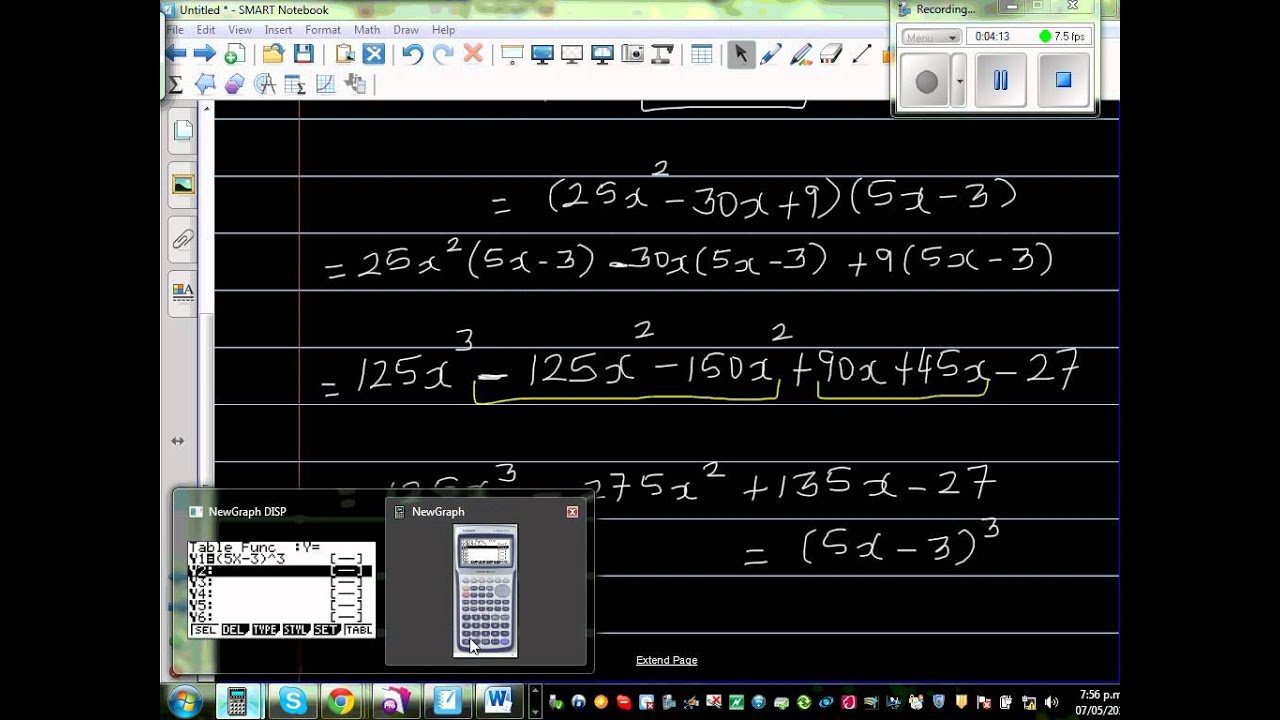 Untitled * - SMART Notebook
File Edit View Insert Format Math Draw Help
Recording...
Menu
0:04:13
7.5 fps
= (25x² - 30x + 9)(5x - 3)
= 25x²(5x - 3) - 30x(5x - 3) + 9(5x - 3)
= 125x³ - 125x² - 150x² + 90x + 45x - 27
275x² + 135x - 27
= (5x - 3)³
NewGraph DISP
NewGraph
Table Func :Y=
Y1=(5X-3)^3 [—]
Y2: [—]
Y3: [—]
Y4: [—]
Y5: [—]
Y6: [—]
SEL DEL TYPE STYL SET TABL
Extend Page
7:56 p.m
07/05/20